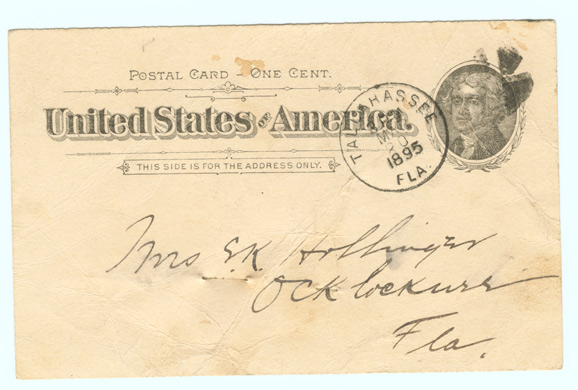 POSTAL CARD – ONE CENT.
United States of America.
THIS SIDE IS FOR THE ADDRESS ONLY.
TALLAHASSEE
1895
FLA.
Mrs E.K. Hollinger
Ocklocknee
Fla.